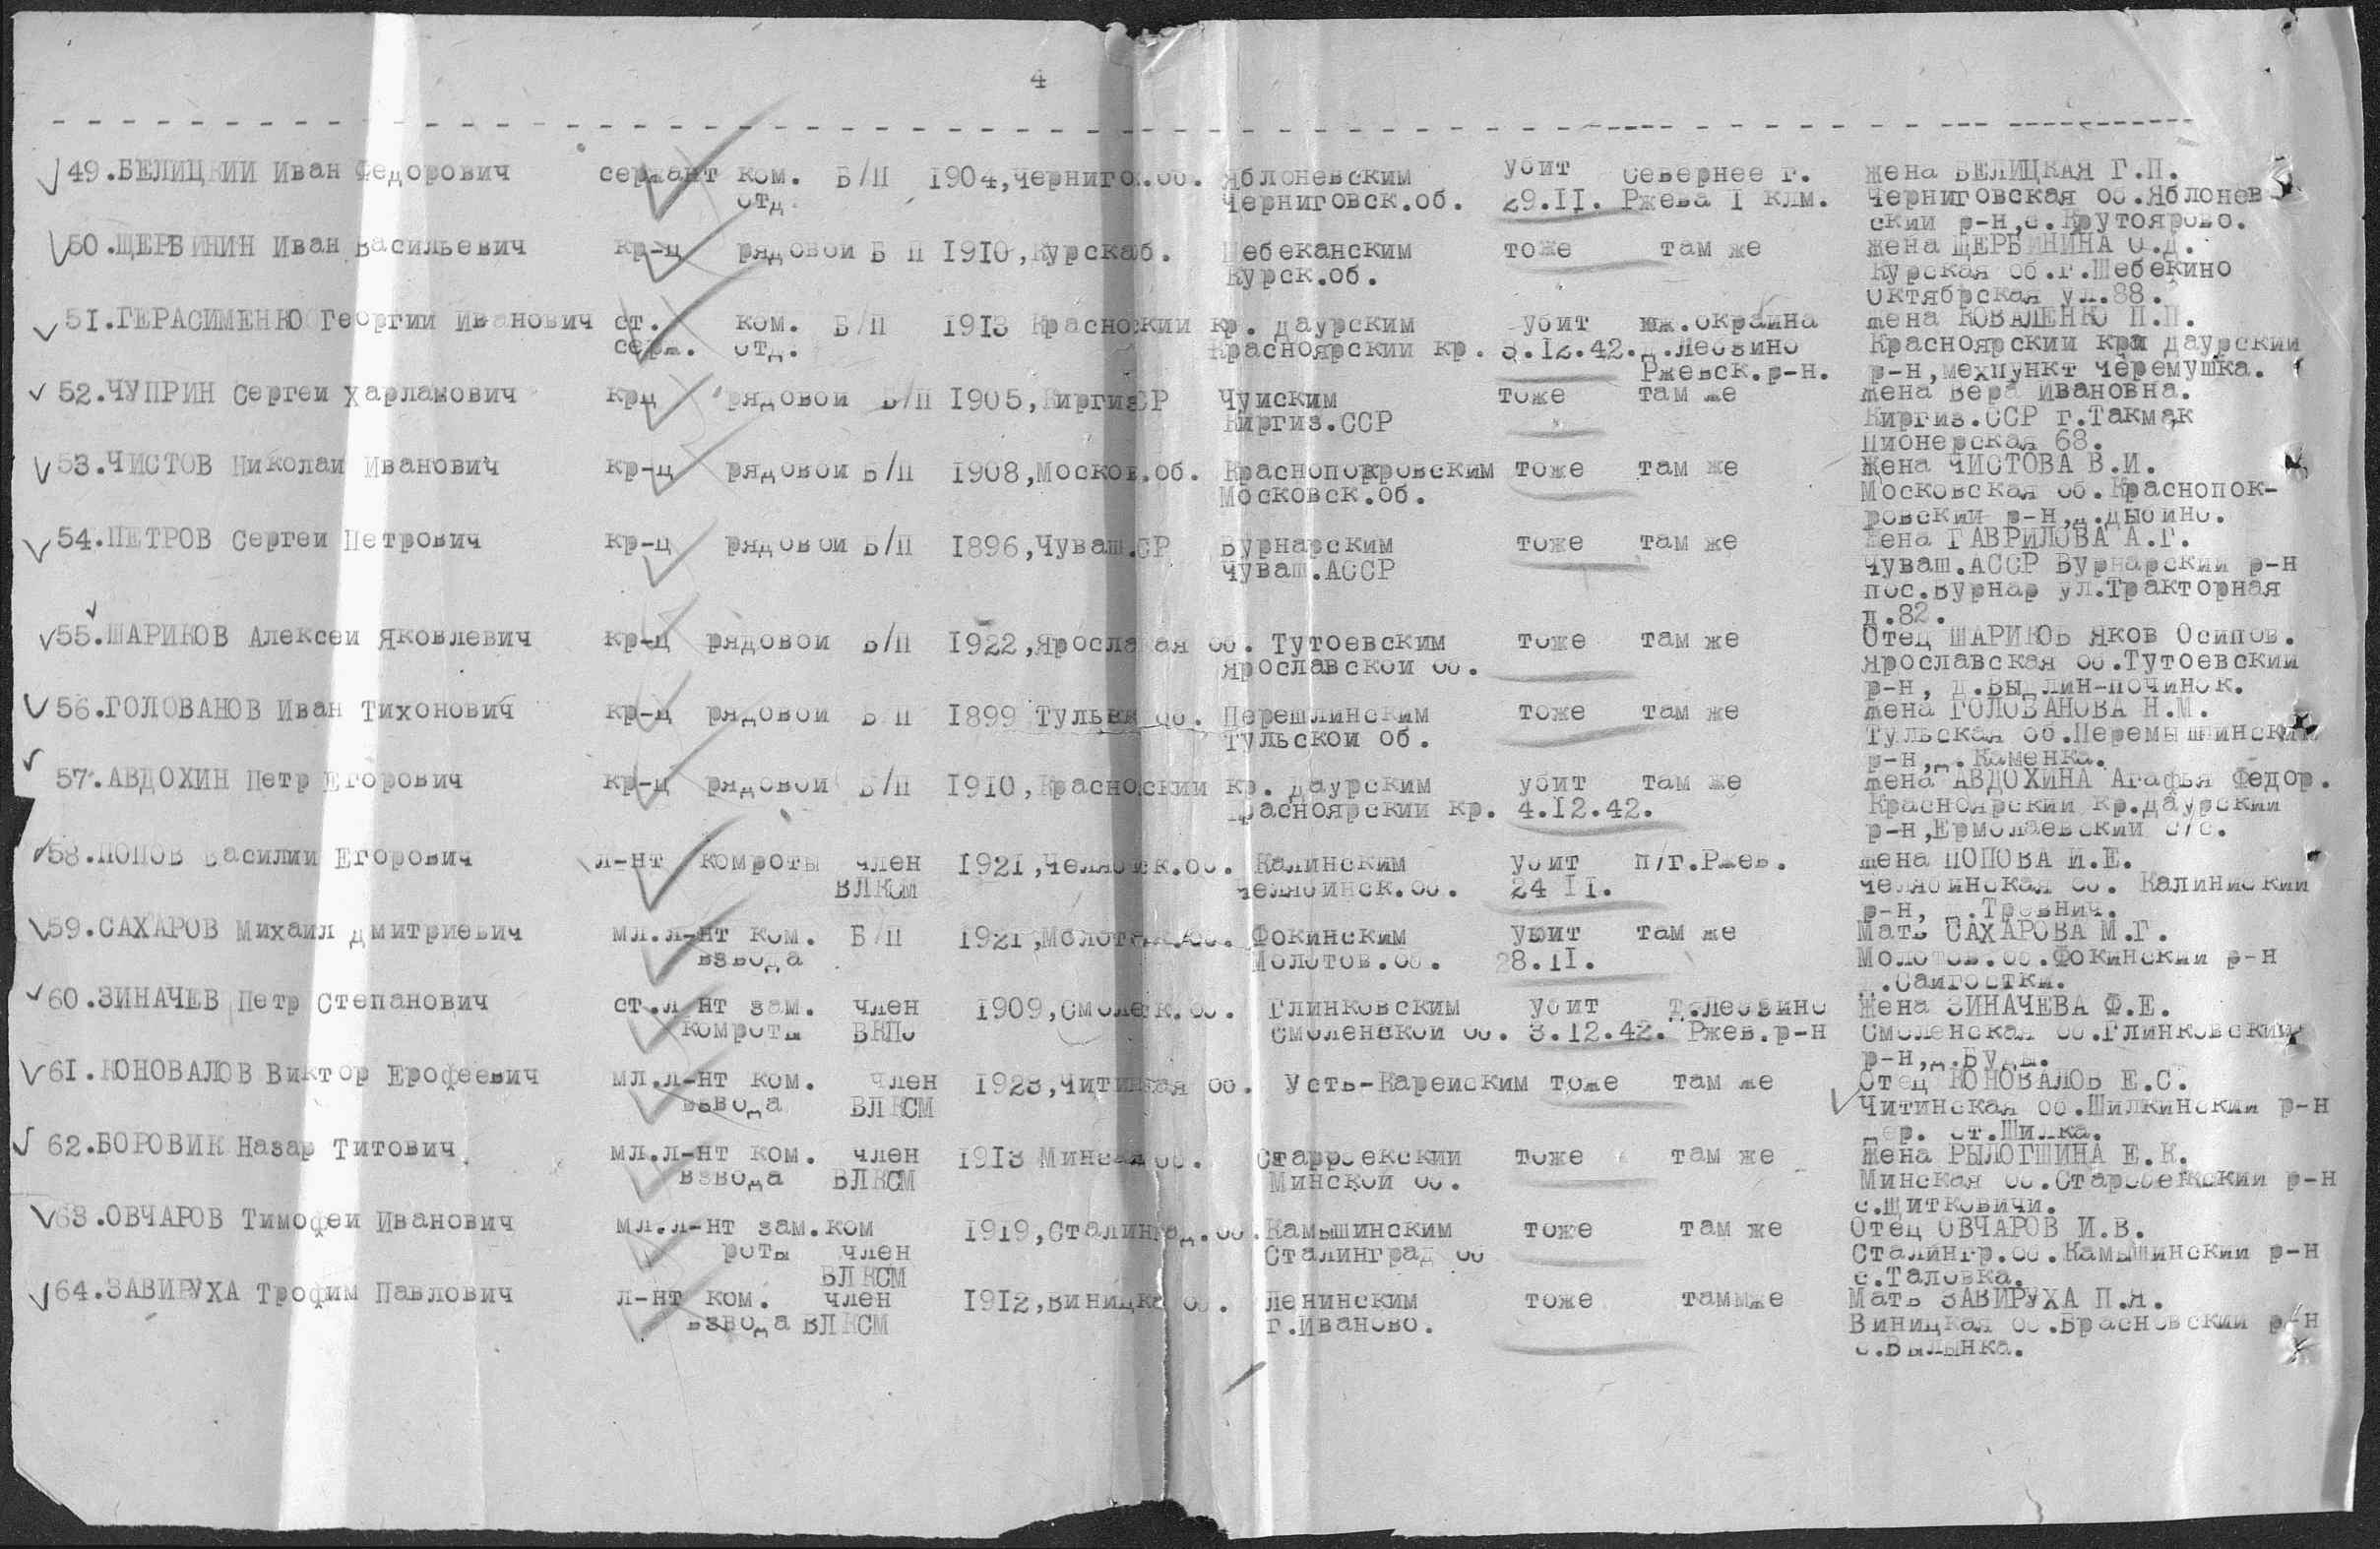 4
49.БЕЛИЦКИЙ Иван Федорович сержант ком. Б/П 1904,Чернигов.об. Яблоневским убит Севернее г. жена БЕЛИЦКАЯ Г.П.
отд. Черниговск.об. 29.II. Ржева I клм. Черниговская об.Яблонев
ский р-н,с.Крутоярово.
50.ЩЕРБИНИН Иван Васильевич кр-ц рядовой Б П 1910,Курская об. Шебеканским тоже там же жена ЩЕРБИНИНА О.Д.
Курск.об. Курская об.г.Шебекино
Октябрская ул.88.
51.ГЕРАСИМЕНКО Георгий Иванович ст. ком. Б/П 1913 Красноский кр. Даурским убит юж.окраина жена КОВАЛЕНКО П.П.
серж. отд. Красноярский кр. 3.12.42. д.Лебзино Красноярский край Даурский
Ржевск.р-н. р-н,мехпункт черемушка.
52.ЧУПРИН Сергей Харламович крц рядовой Б/П 1905,Киргиз СР Чуйским тоже там же жена Вера Ивановна.
Киргиз.ССР Киргиз.ССР г.Такмак
Пионерская 68.
53.ЧИСТОВ Николай Иванович кр-ц рядовой Б/П 1908,Москов.об. Краснопокровским тоже там же жена ЧИСТОВА В.И.
Московск.об. Московская об.Краснопок-
ровский р-н,д.Дыбино.
54.ПЕТРОВ Сергей Петрович кр-ц рядовой Б/П 1896,Чуваш.СР Вурнарским тоже там же жена ГАВРИЛОВА А.Г.
Чуваш.АССР Чуваш.АССР Вурнарский р-н
пос.Вурнар ул.Тракторная
д.82.
55.ШАРИКОВ Алексей Яковлевич кр-ц рядовой Б/П 1922,Ярославая об. Тутоевским тоже там же Отец ШАРИКОВ Яков Осипов.
Ярославской об. Ярославская об.Тутоевский
р-н, д.Выдлин-починок.
56.ГОЛОВАНОВ Иван Тихонович кр-ц рядовой Б П 1899 Тульск об. Перешлинским тоже там же жена ГОЛОВАНОВА Н.М.
Тульской об. Тульская об.Перемышлинский
р-н,д.Каменка.
57.АВДОХИН Петр Егорович кр-ц рядовой Б/П 1910,Красноский кр. Даурским убит там же жена АВДОХИНА Агафья Федор.
Красноярский кр. 4.12.42. Красноярский кр.Даурский
р-н,Ермолаевский с/с.
58.ПОПОВ Василий Егорович л-нт комроты член 1921,Челябск.об. Калинским убит п/г.Ржев. жена ПОПОВА И.Е.
ВЛКСМ Челябинск.об. 24 II. Челябинская об. Калининский
р-н,
59.САХАРОВ Михаил Дмитриевич мл.л-нт ком. Б/П 1921,Молот об. Фокинским убит там же Мать САХАРОВА М.Г.
взвода Молотов.об. 28.II. Молотов.об.Фокинский р-н
д.Сайгостки.
60.ЗИНАЧЕВ Петр Степанович ст.л нт зам. член 1909,Смоленск.об. Глинковским убит д.Лебзино Жена ЗИНАЧЕВА Ф.Е.
комроты ВКПб Смоленской об. 3.12.42. Ржев.р-н Смоленская об.Глинковский
р-н,д.Буды.
61.КОНОВАЛОВ Виктор Ерофеевич мл.л-нт ком. член 1923,Читинская об. Усть-Карейским тоже там же Отец КОНОВАЛОВ Е.С.
взвода ВЛКСМ Читинская об.Шилкинский р-н
дер. ст.Шилка.
62.БОРОВИК Назар Титович мл.л-нт ком. член 1913 Минская об. Старобекский тоже там же жена РЫЛОГШИНА Е.К.
взвода ВЛКСМ Минской об. Минская об.Старобежский р-н
с.Щитковичи.
63.ОВЧАРОВ Тимофей Иванович мл.л-нт зам.ком 1919,Сталинград.об. Камышинским тоже там же Отец ОВЧАРОВ И.В.
роты член Сталинград об Сталингр.об.Камышинский р-н
ВЛКСМ с.Таловка.
64.ЗАВИРУХА Трофим Павлович л-нт ком. член 1912,Виницка об. Ленинским тоже таммже Мать ЗАВИРУХА П.Я.
взвода ВЛКСМ г.Иваново. Виницкая об.Брасновский р-н
с.Вылынка.